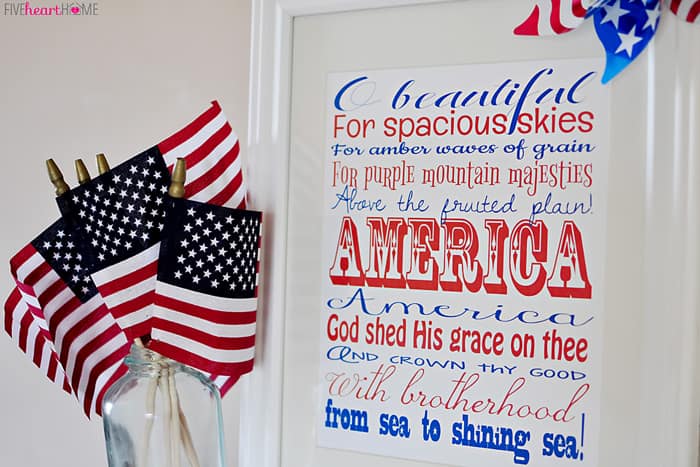 FIVEheartHOME
O beautiful
For spacious skies
For amber waves of grain
For purple mountain majesties
Above the fruited plain!
AMERICA
America
God shed His grace on thee
And crown thy good
With brotherhood
from sea to shining sea!